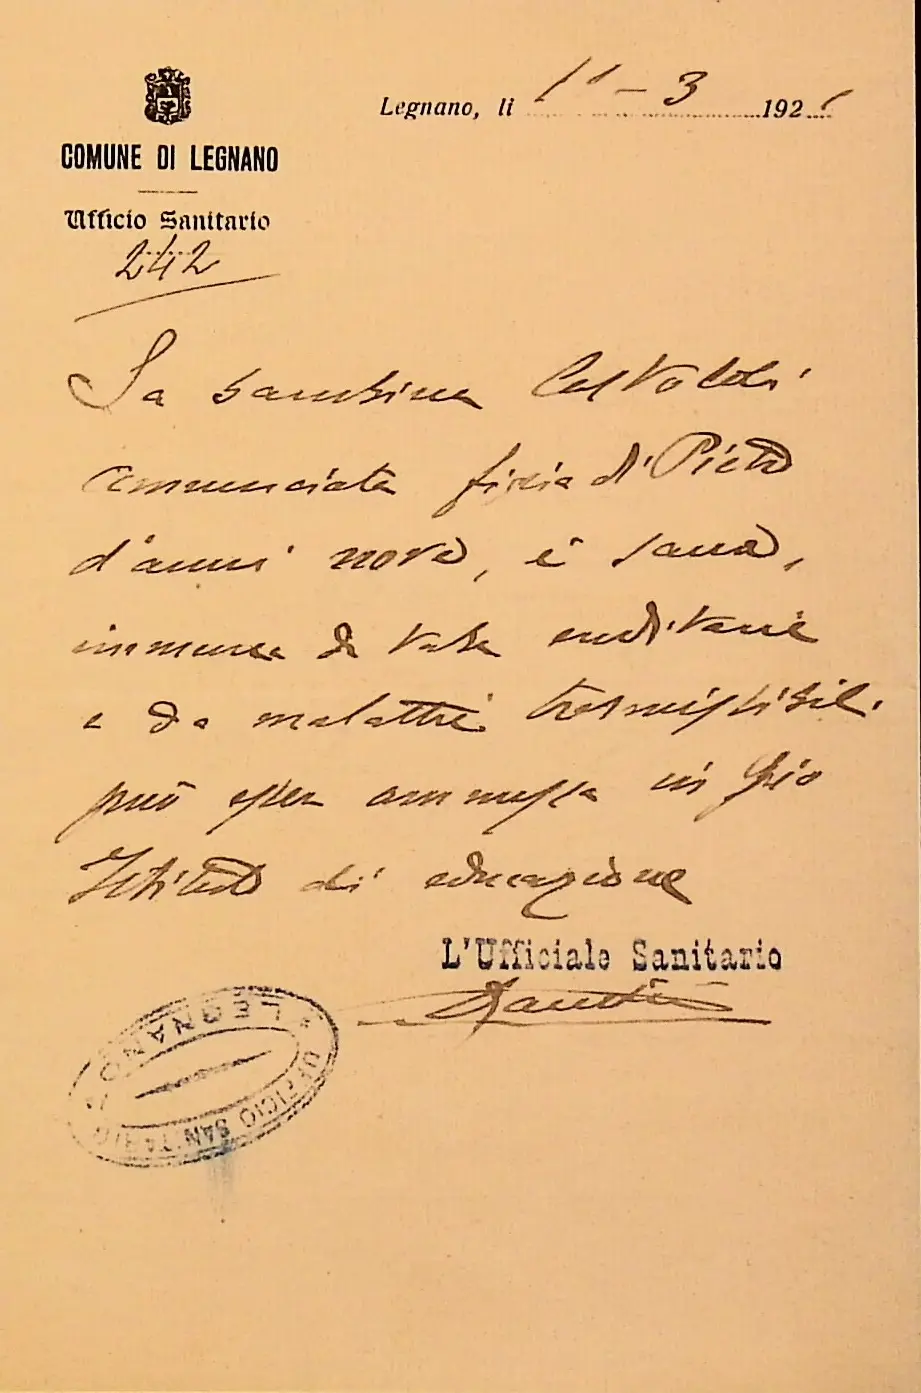 Legnano, li 1° - 3 192
COMUNE DI LEGNANO
Ufficio Sanitario
242
La bambina Castoldi
Annunciata figlia di Pietro
d'anni nove, è sana,
immune da tabe ereditarie
e da malattie trasmissibili
può esser ammessa in Pio
Istituto di educazione
L'Ufficiale Sanitario
UFFICIO SANITARIO
LEGNANO